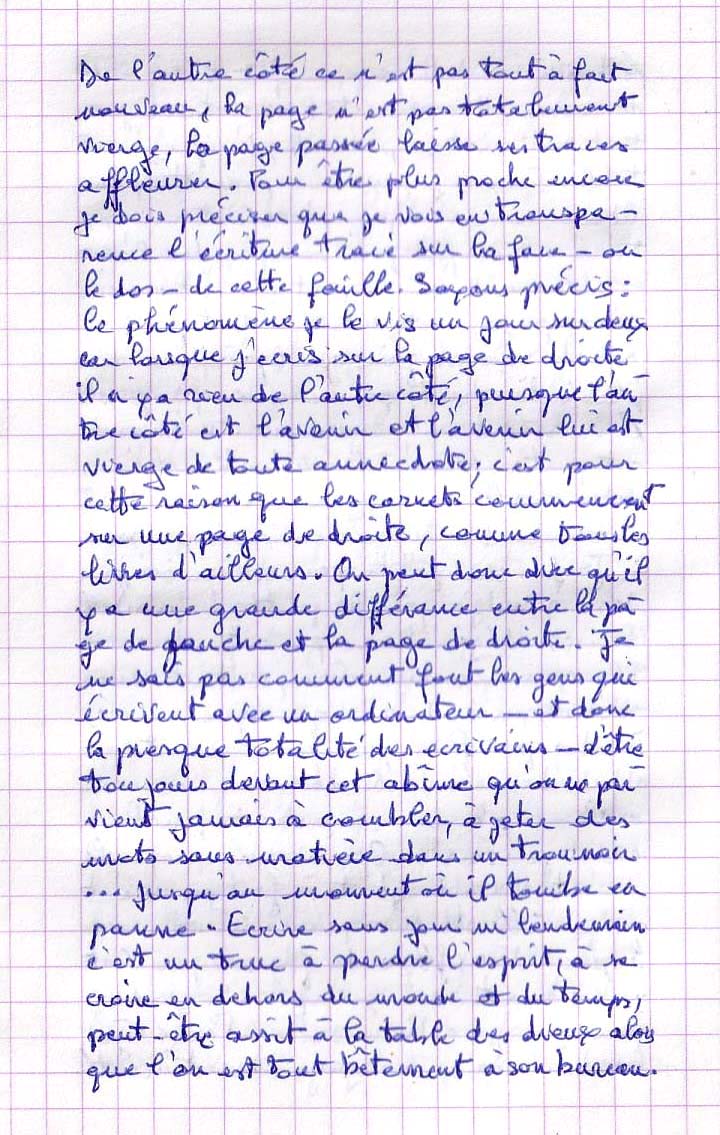 De l'autre côté ce n'est pas tout à fait
nouveau, la page n'est pas totalement
vierge, la page passée laisse ses traces
affleurer. Pour être plus proche encore
je dois préciser que je vois en transpa-
rence l'écriture tracé sur la face - ou
le dos - de cette feuille. Soyons précis :
le phénomène je le vis un jour sur deux
car lorsque j'écris sur la page de droite
il n'y a rien de l'autre côté, puisque l'au
tre côté est l'avenir et l'avenir lui est
vierge de toute annecdote ; c'est pour
cette raison que les carnets commencent
sur une page de droite, comme tous les
livres d'ailleurs. On peut donc dire qu'il
y a une grande différance entre la pa
ge de gauche et la page de droite. Je
ne sais pas comment font les gens qui
écrivent avec un ordinateur - et donc
la presque totalité des écrivains - d'être
toujours devant cet abîme qu'on ne par
vient jamais à combler, à jeter des
mots sans matière dans un trou noir
... jusqu'au moment où il tombe en
panne. Ecrire sans jour ni lendemain
c'est un truc à perdre l'esprit, à se
croire en dehors du monde et du temps,
peut-être assit à la table des dieux alors
que l'on est tout bêtement à son bureau.